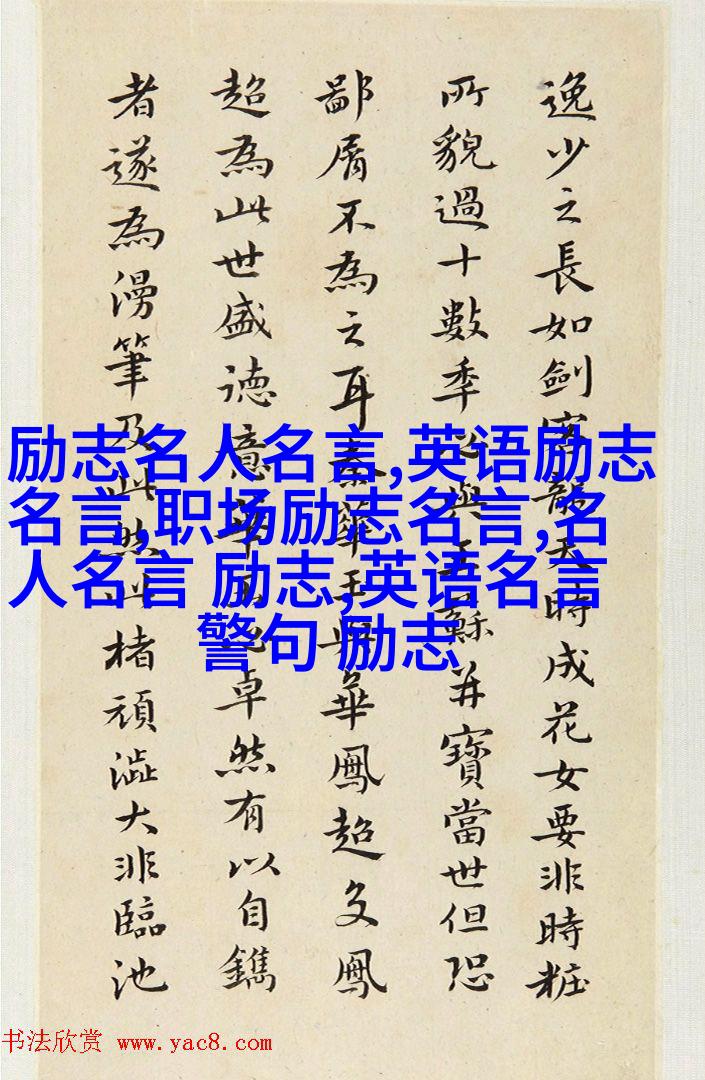 逸少之長如劍客龍天時成花女要非時粧
所貌過十數季公與王蘇并寶當世但恐
鄙屑不為之耳華王與華鳳超文鳳
超為此世盛德意卓然有以自鐫
者遂為漫筆及此然此楮頑澁大非臨池
励志名人名言,英语励志
名言,职场励志名言,名
人名言 励志,英语名言
警句 励志
书法欣赏 www.yac8.com